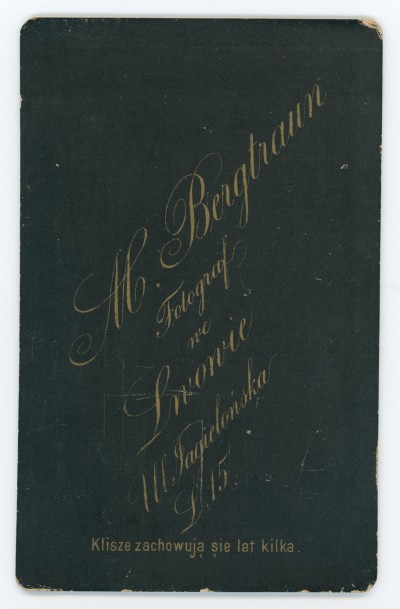 M. Bergtraun
Fotograf
we
Lwowie
Ul. Jagielońska
L. 15.
Klisze zachowują się lat kilka.